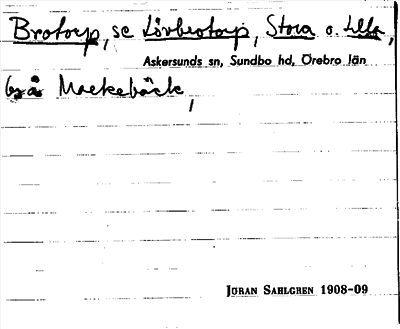 Brotorp, se Lövbrotorp, Stora o. Lilla,
Askersunds sn, Sundbo hd, Örebro län
Mackebäck,
JÖRAN SAHLGREN 1908-09